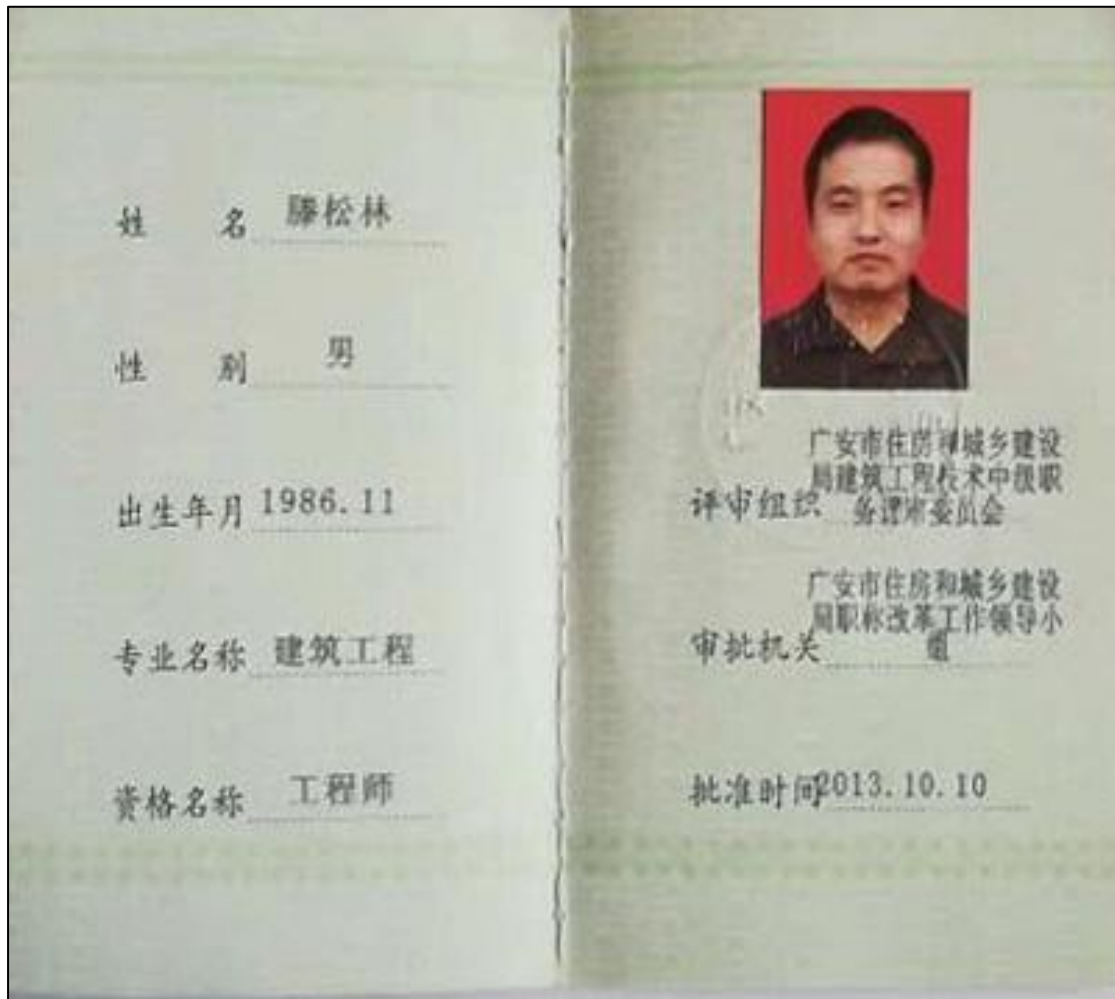 姓名 滕松林
性别 男
出生年月 1986.11
专业名称 建筑工程
资格名称 工程师
广安市住房和城乡建设
局建筑工程技术中级职
评审组织 务评审委员会
广安市住房和城乡建设
局职称改革工作领导小
审批机关 组
批准时间2013.10.10